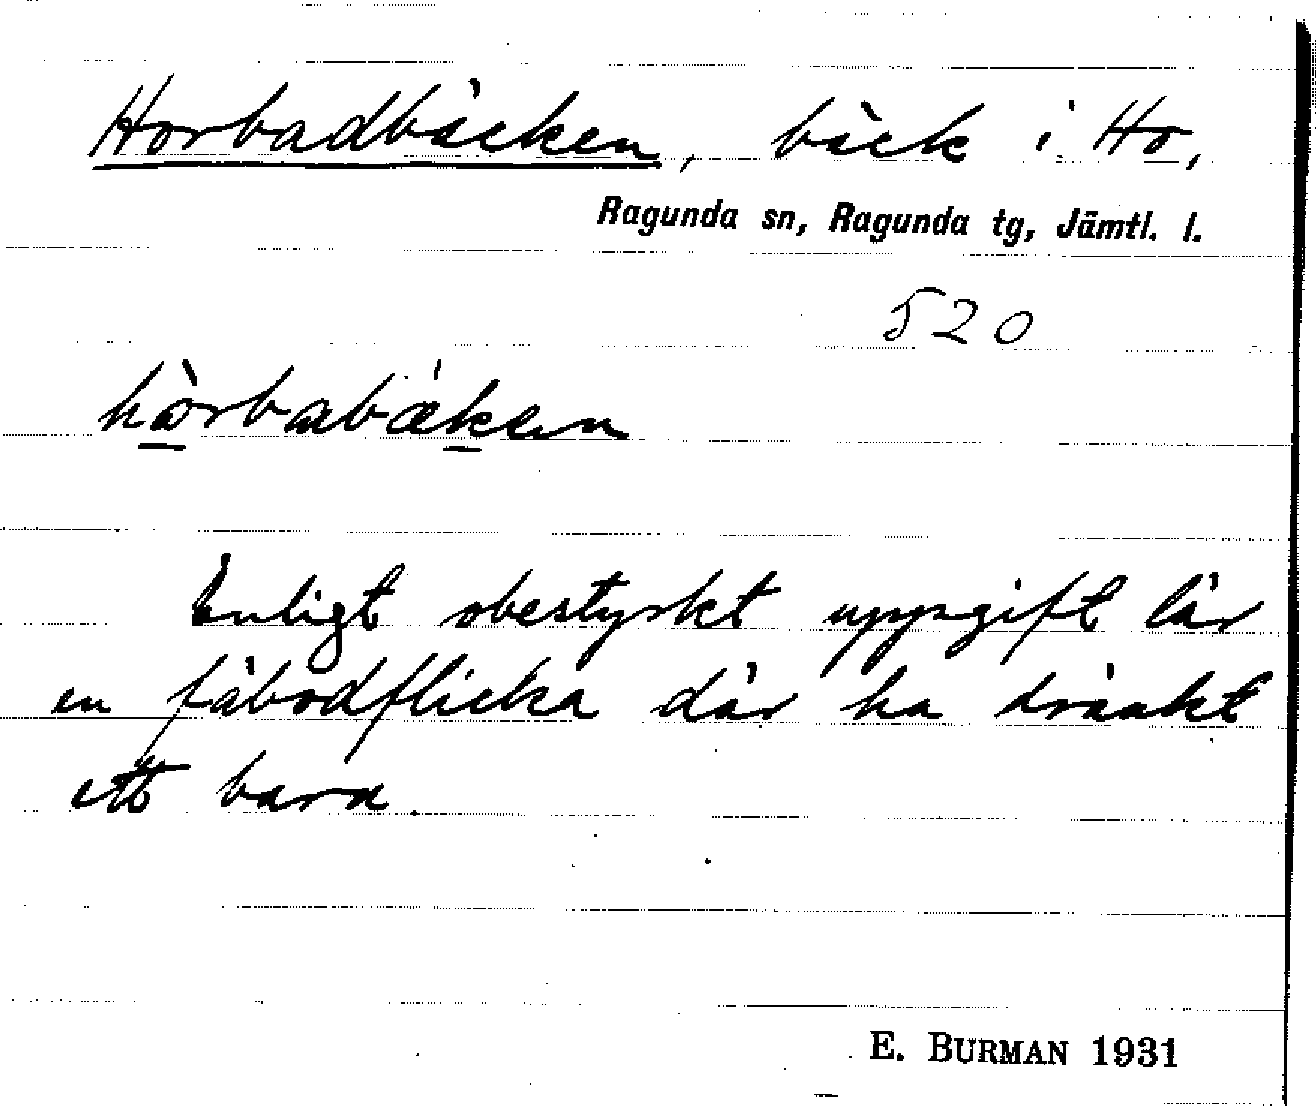 Horbadbäcken, bäck i Ho,
Ragunda sn, Ragunda tg, Jämtl. l.
520
hòrbabǽken
Enligt obestyrkt uppgift lär
en fäbodflicka där ha dränkt
ett barn.
E. BURMAN 1931